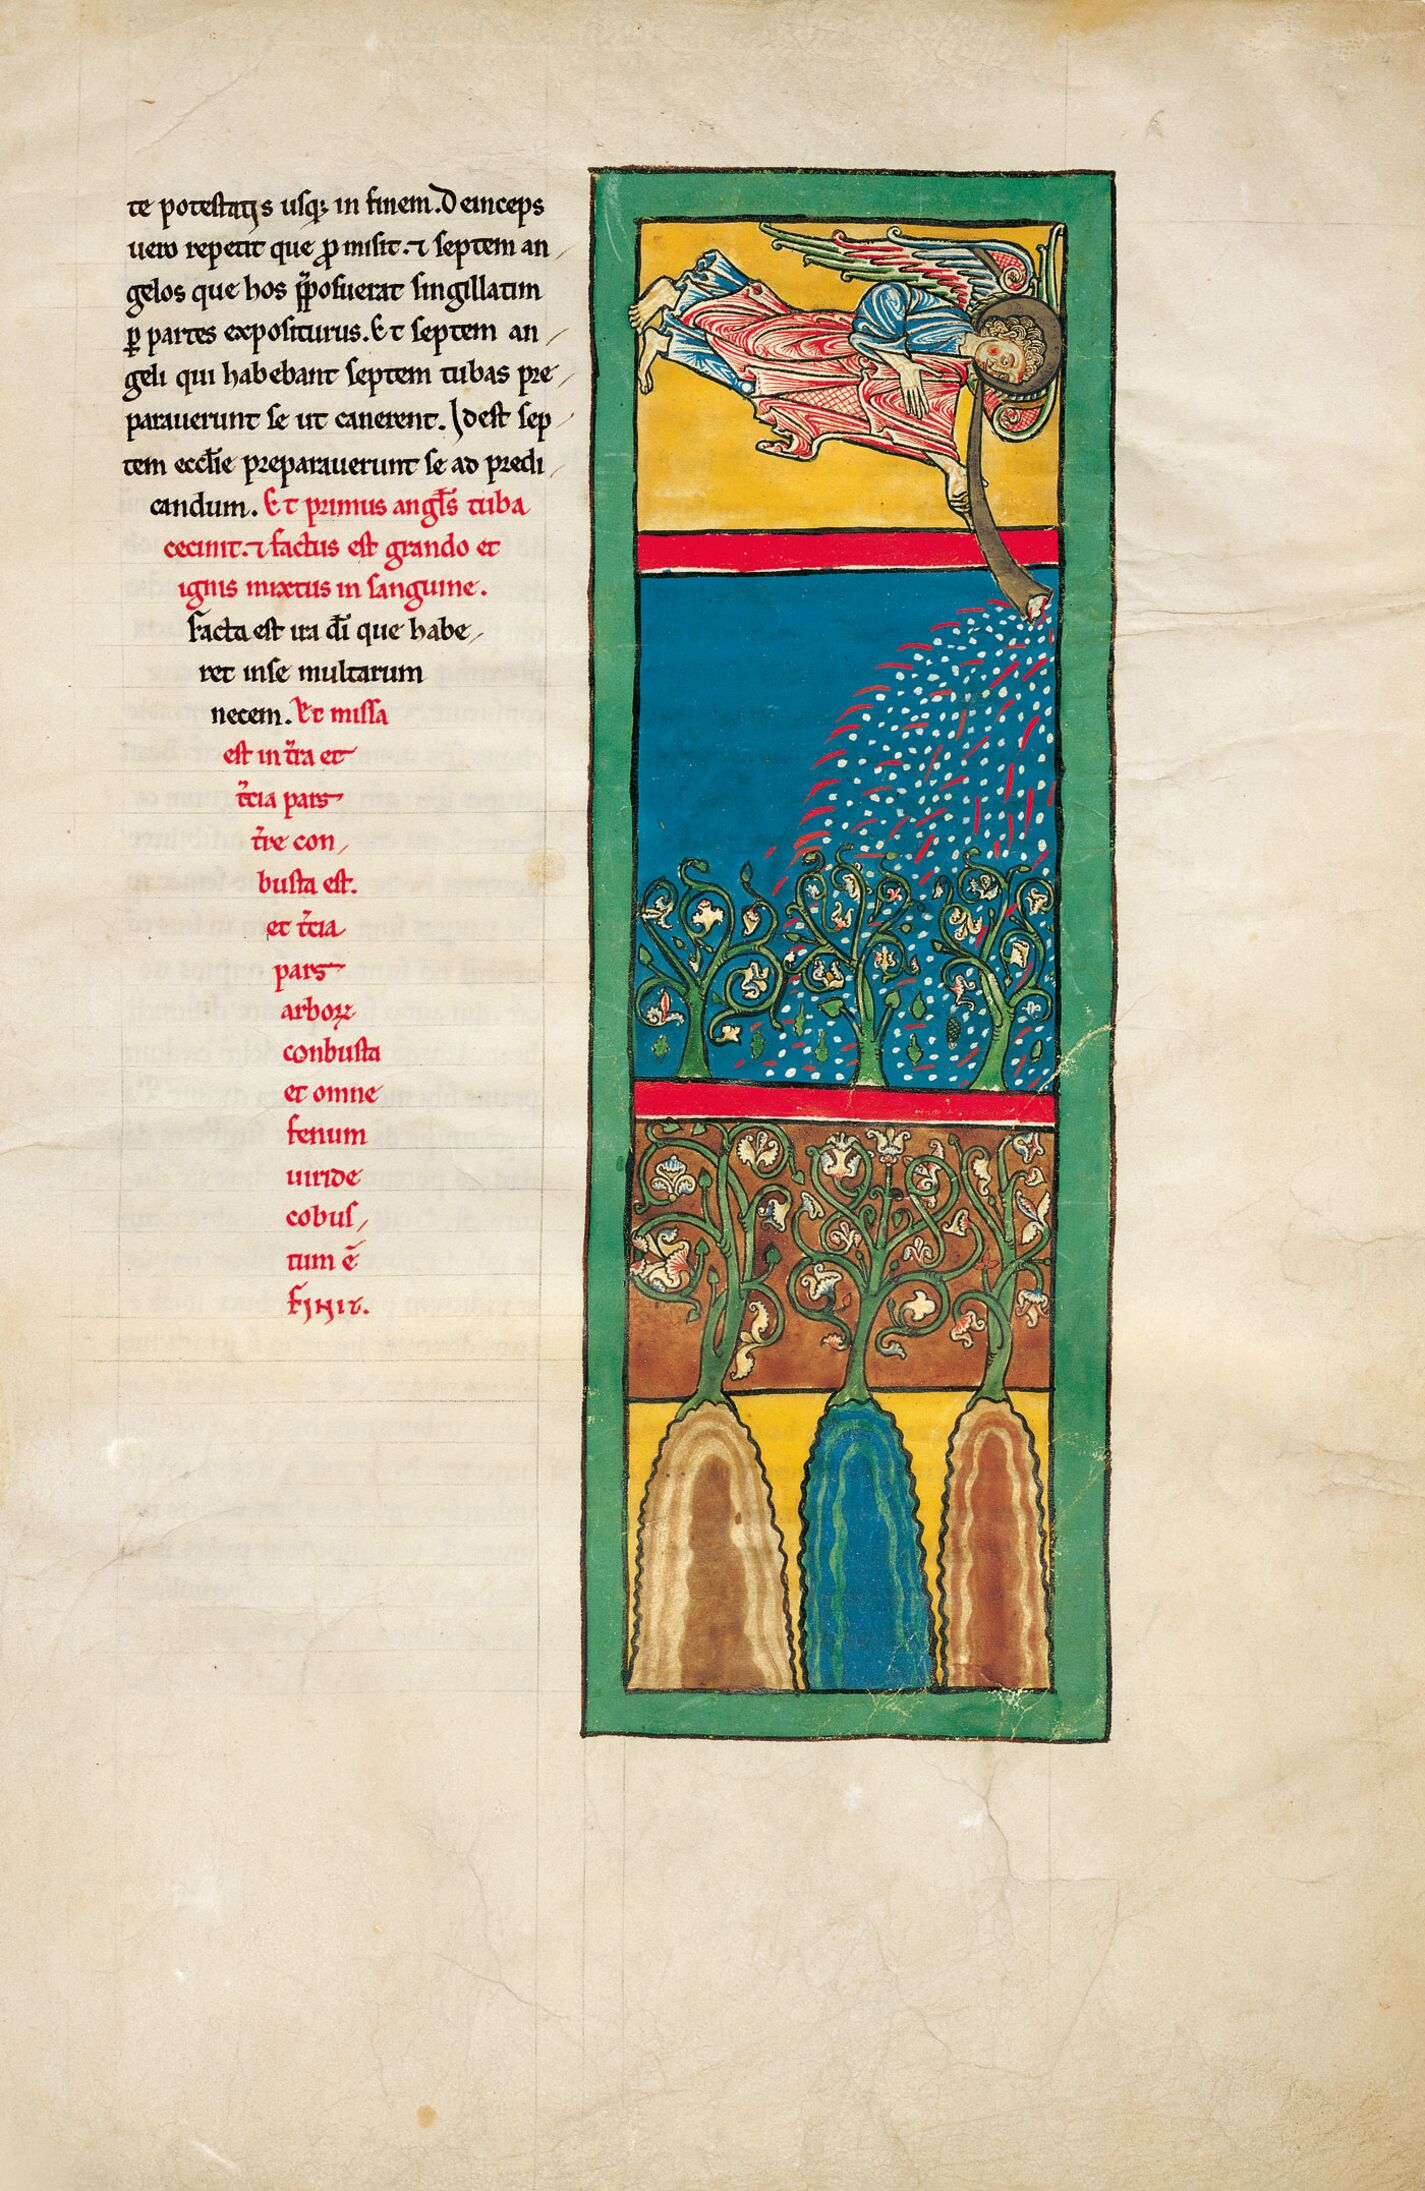 te potestatis usq; in finem. Deinceps
uero repetit que p̱misit. ⁊ septem an
gelos que hos p̄posuerat singillatim
ꝑ partes expositurus. Et septem an
geli qui habebant septem tubas pre
parauerunt se ut canerent. Idest sep
tem eccl̄ie preparauerunt se ad predi
candum. Et primus angl̄s tuba
cecinit. ⁊ factus est grando et
ignis mixtus in sanguine.
Facta est ira dī que habe
ret inse multarum
necem. Et missa
est in t̄ra et
t̄cia pars
t̄re con
busta est.
et t̄cia
pars
arboꝝ
conbusta
et omne
fenum
uiride
cobus
tum ē
finit.